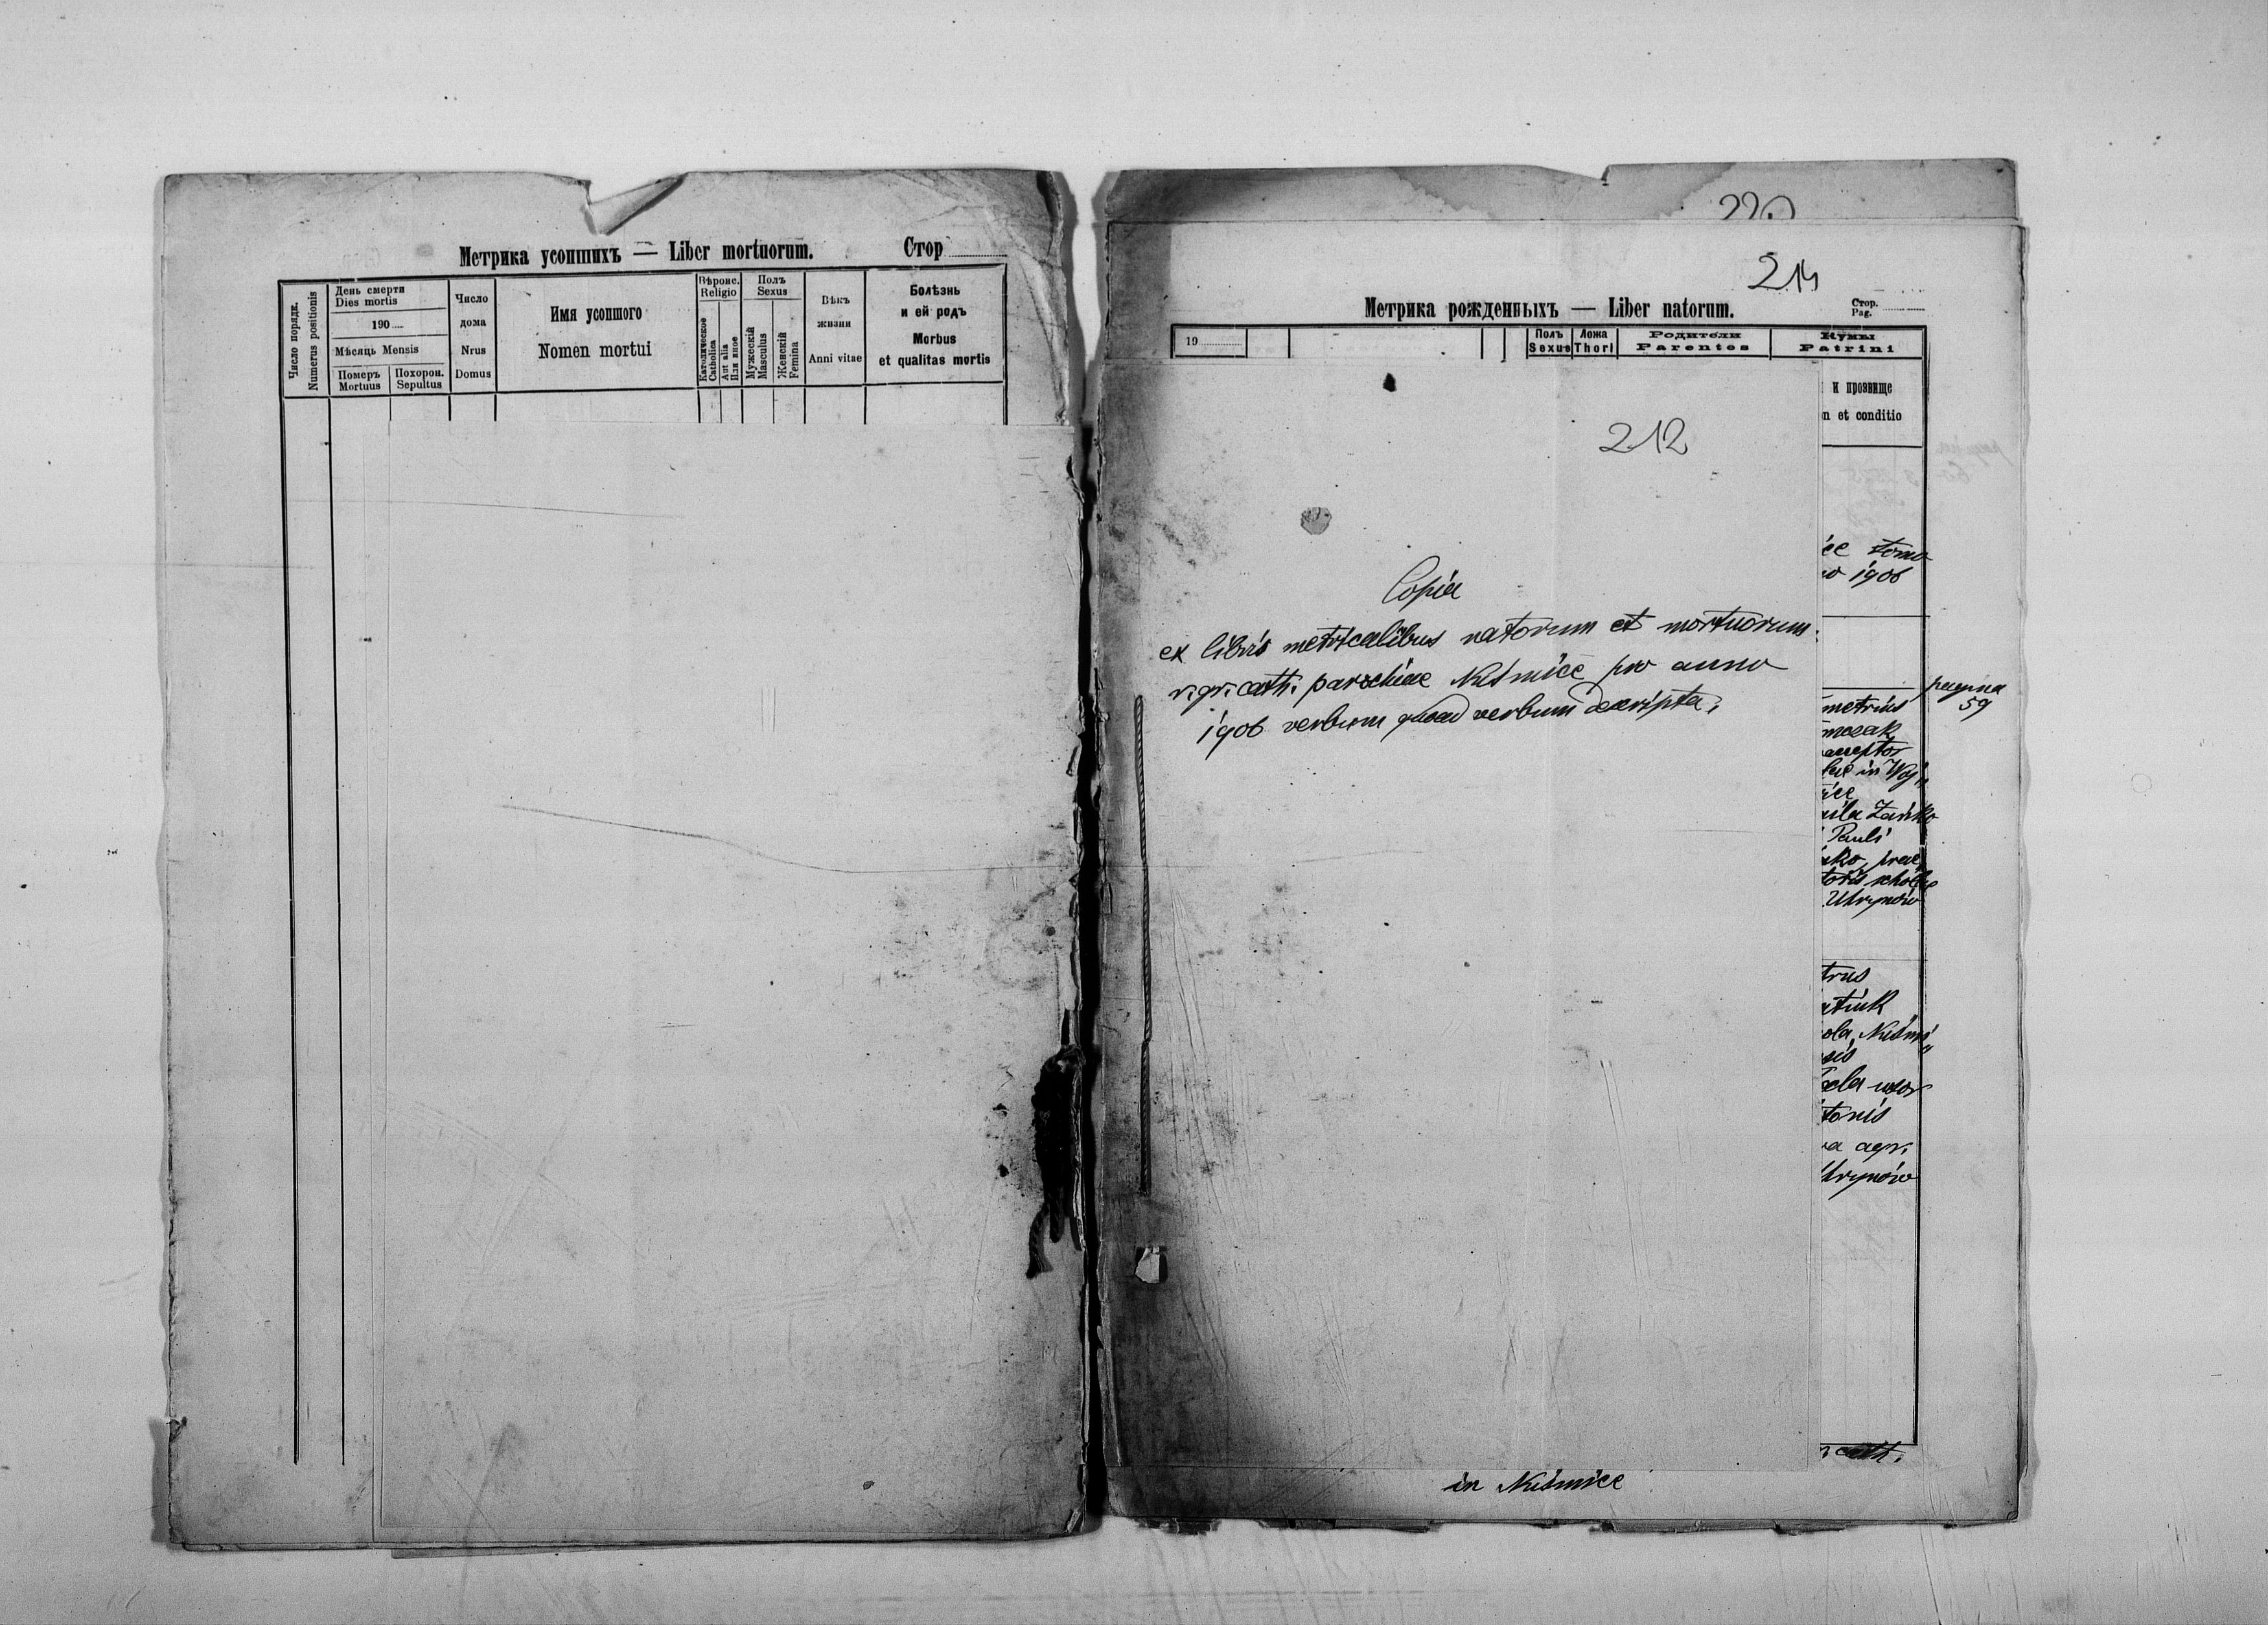 Метрика усопшихъ — Liber mortuorum. Стор
Число порядк.
Numerus positionis
День смерти
Dies mortis
190
Мѣсяць Mensis
Померъ
Mortuus
Похорон.
Sepultus
Число
дома
Nrus
Domus
Имя усопшого
Nomen mortui
Вѣроис.
Religio
Католическое
Catholica
Aut alia
Или иное
Полъ
Sexus
Мужескій
Masculus
Женскій
Femina
Вѣкъ
жизни
Anni vitae
Болѣзнь
и ей родъ
Morbus
et qualitas mortis
220
214
Метрика рожденныхъ — Liber natorum.
Стор.
Pag.
19
Полъ
Sexus
Ложа
Thori
Родители
Parentes
Кумы
Patrini
и прозвище
n et conditio
212
Copia
ex libris metricalibus natorum et mortuorum
r. gr. cath. parochiae Nuśmice pro anno
1906 verbum quoad verbum descripta.
ce tomo
o 1906
pagina
59
metrius
mczak
ceptor
lae in Woj„
ice
ila Zańko
Pauli
ko, prae„
toris scholae
Uhrynów
trus
atiuk
ola, Nuśmi„
sis
cla uxor
tonis
a agr.
Uhrynów
cath.
in Nuśmice